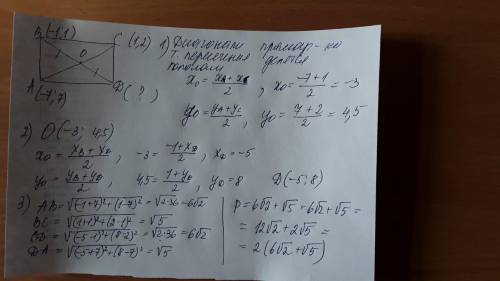 B(-1,1)
C (1,2)
O
A
(-7,7)
D ( ? )
1) Диагонали прямоу-ка
т. пересечения делятся
пополам
x₀ = (x_A + x_C)/2, x₀ = (-7+1)/2 = -3
y₀ = (y_A + y_C)/2, y₀ = (7+2)/2 = 4,5
2) O(-3; 4,5)
x₀ = (x_B + x_D)/2, -3 = (-1+x_D)/2, x_D = -5
y₀ = (y_B + y_D)/2, 4,5 = (1+y_D)/2, y_D = 8 D(-5; 8)
3) AB = √(-1+7)²+(1-7)² = √2·36 = 6√2
BC = √(1+1)²+(2-1)² = √5
CD = √(-5-1)²+(8-2)² = √2·36 = 6√2
DA = √(-5+7)²+(8-7)² = √5
P = 6√2 + √5 + 6√2 + √5 =
= 12√2 + 2√5 =
= 2(6√2 + √5)